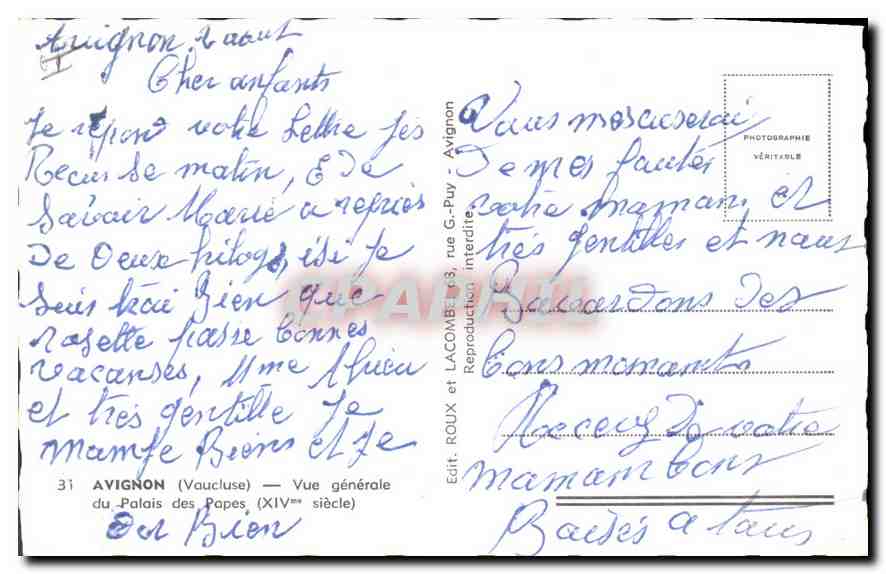 Avignon 2 aout
Cher anfants
Je répond votre Lettre jes
Recus se matin, E De
Savoir Marie a repries
De Deux kilogs, isi Je
Suis trai Bien que
Rosette passe bonnes
vacanses, Mme
et très gentille Je
mamje Biens et Je
31 AVIGNON (Vaucluse) — Vue générale
du Palais des Papes (XIVme siècle)
Dor Bien
Edit. ROUX et LACOMBE, 63, rue G.-Puy - Avignon
Reproduction interdite
PHOTOGRAPHIE
VÉRITABLE
Vous mescuserai
De mes fautes
votre maman et
très gentilles et nous
Bavardons des
bons momants
Recevez De votre
maman bons
Baisés a tous
CPARAMA